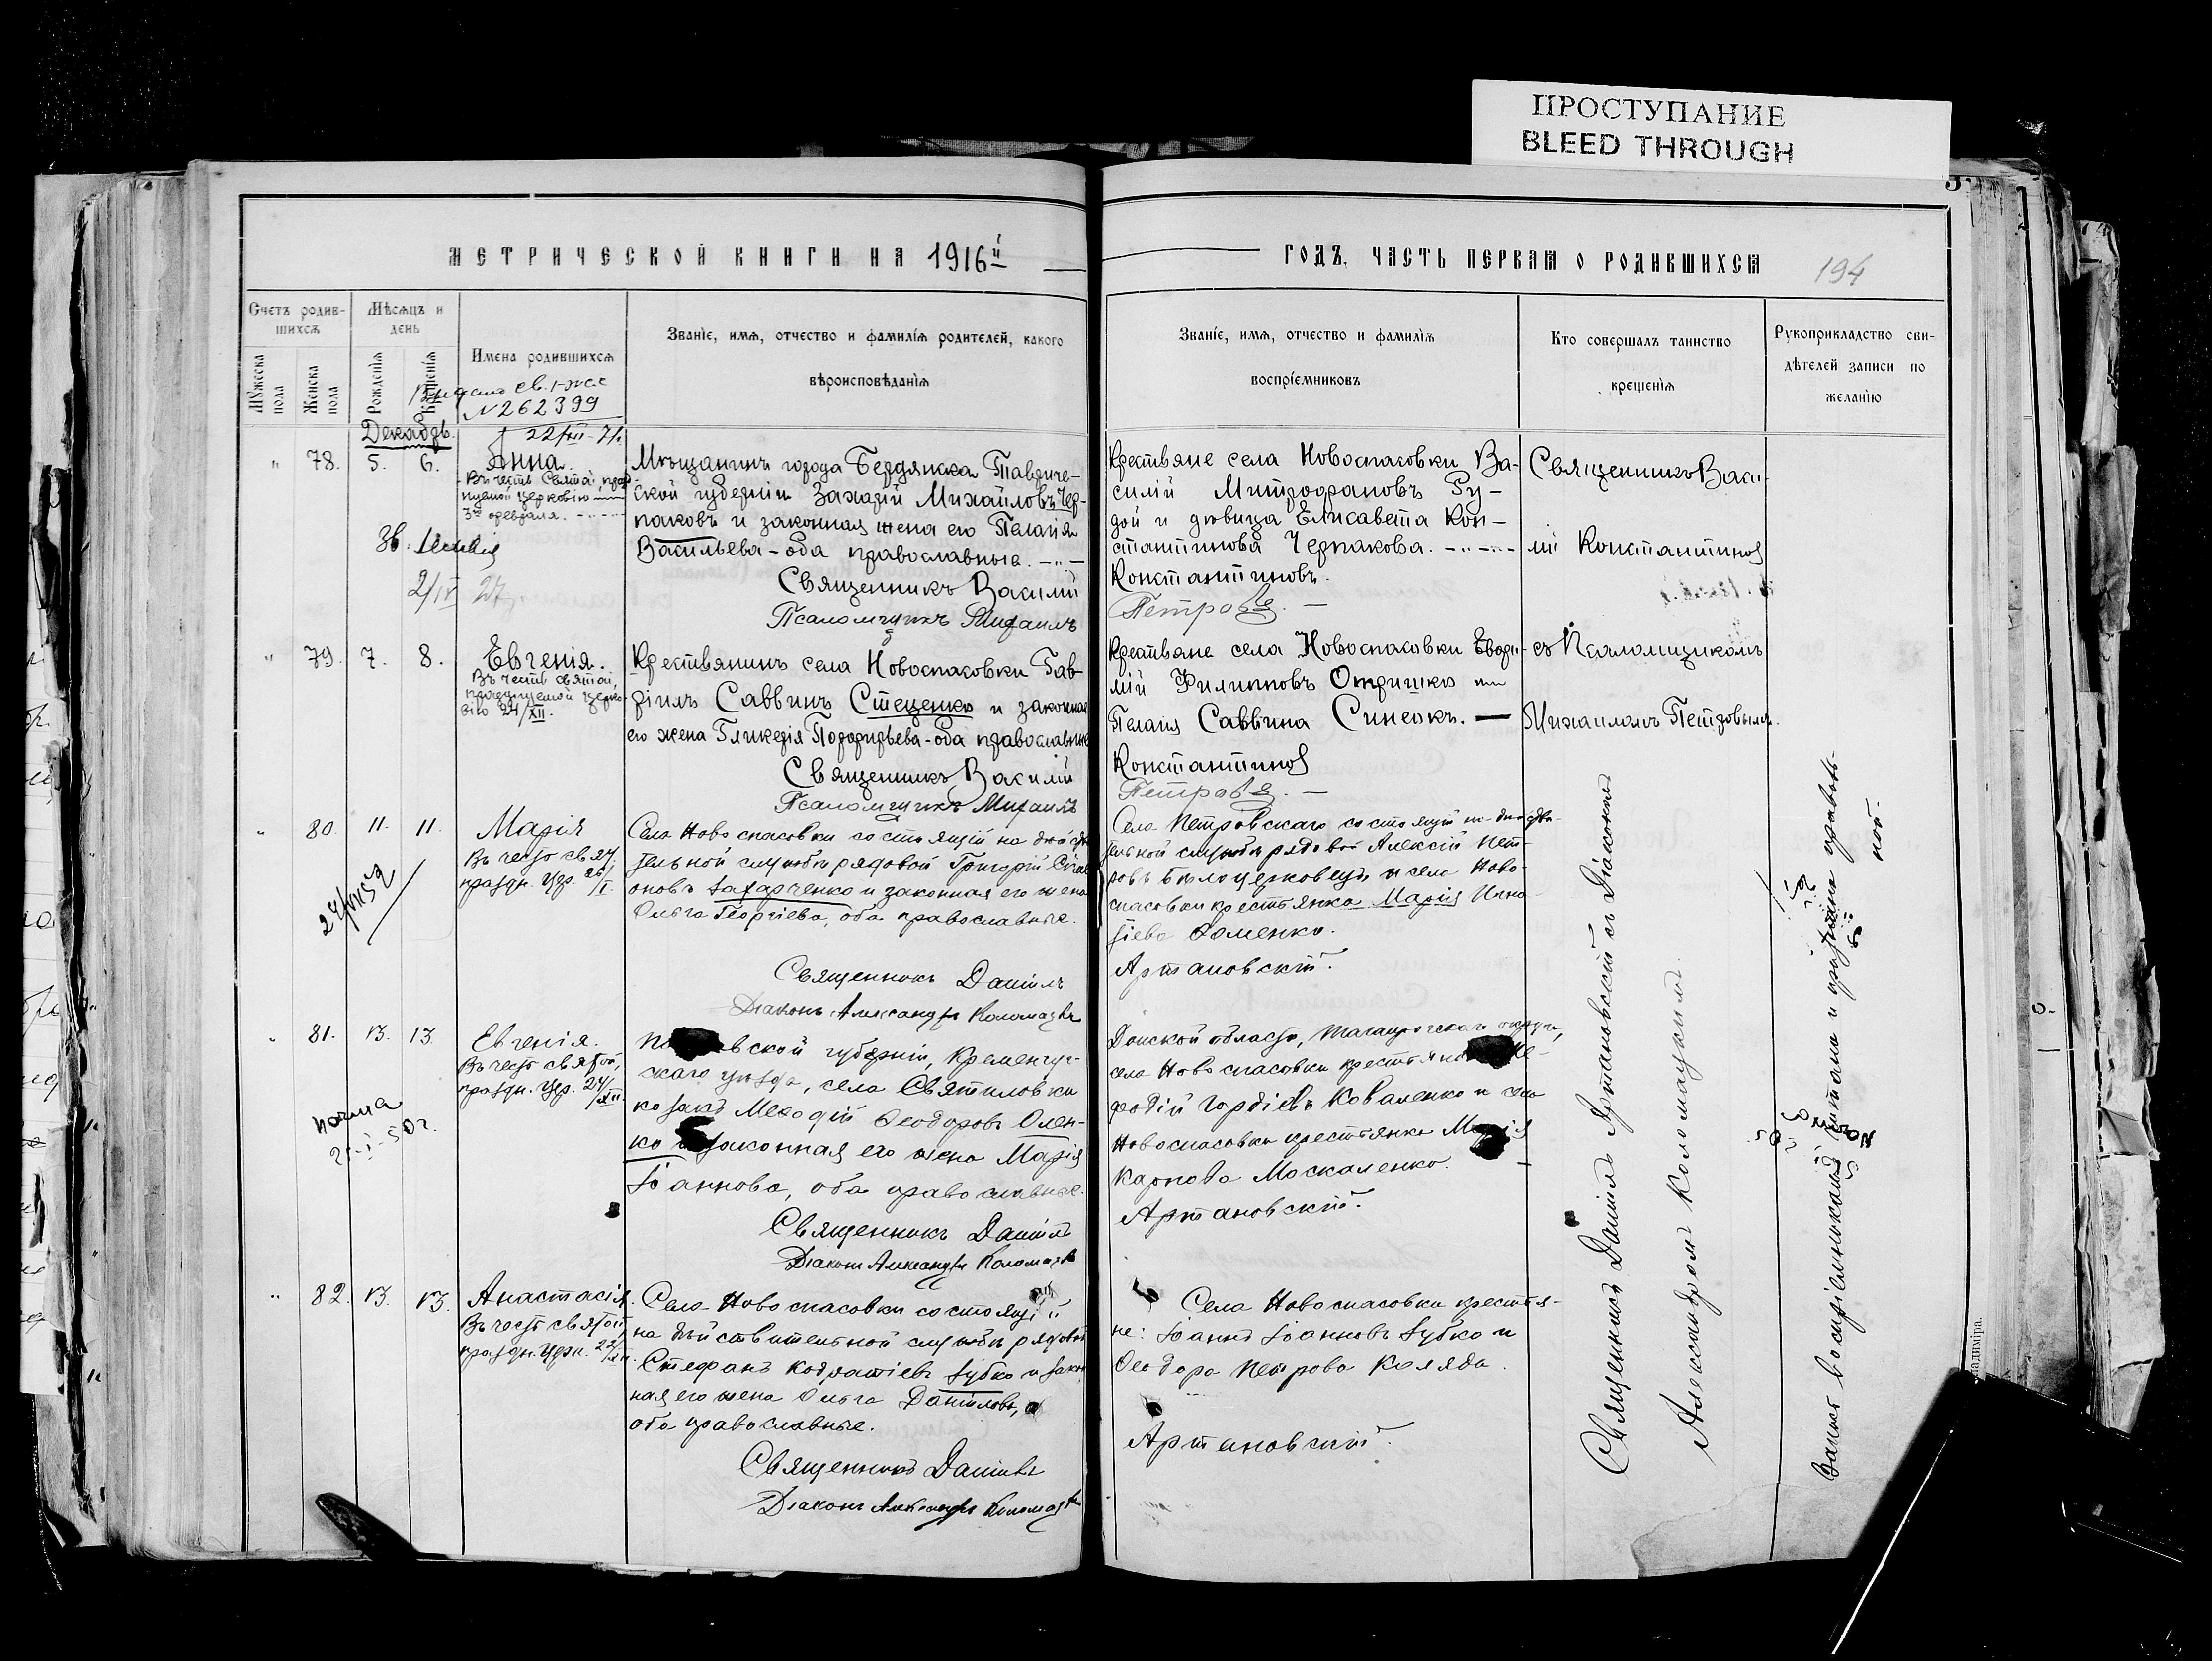 ПРОСТУПАНИЕ
BLEED THROUGH
МЕТРИЧЕСКОЙ КНИГИ НА 1916й
ГОДЪ, ЧАСТЬ ПЕРВАЯ О РОДИВШИХСЯ
194
Счетъ родив-
шихся
Мужеска
пола
Женска
пола
Мѣсяцъ и
день
Рожденія
Крещенія
Имена родившихся
Званіе, имя, отчество и фамилія родителей, какого
вѣроисповѣданія
Званіе, имя, отчество и фамилія
воспріемниковъ
Кто совершалъ таинство
крещенія
Рукоприкладство сви-
дѣтелей записи по
желанію
№ 262399
22/XII-71.
Декабрь
" 78. 5. 6.
Анна.
Въ честь Святой, празд
нуемой Церковію
3го февраля.
2/IV 27
Мѣщанинъ города Бердянска Тавриче-
ской губерніи Захарій Михайловъ Чер-
паковъ и законная жена его Пелагія
Васильева - оба православные.
Священникъ Василій
Псаломщикъ Михаилъ
Крестьяне села Новоспасовки Ва-
силій Митрофановъ Ру-
дой и дѣвица Елисавета Кон-
стантинова Черпакова.
Константиновъ.
Петровъ.
Священникъ Васи-
лій Константиновъ
" 79. 7. 8.
Евгенія.
Въ честь святой,
празднуемой Церко-
вію 24/XII.
Крестьянинъ села Новоспасовки Гав-
ріилъ Саввинъ Стеценко и законная
его жена Гликерія Порфирьева - оба православные
Священникъ Василій
Псаломщикъ Михаилъ
Крестьяне села Новоспасовки Евфи-
мій Филипповъ Отришко и
Пелагія Саввина Синеокъ.
Константиновъ
Петровъ.
съ Псаломщикомъ
Михаиломъ Петровымъ.
" 80. 11. 11.
Марія
Въ честь свят.
праздн. Цер. 26/I.
Села Новоспасовки состоящій на дѣйстви
тельной службѣ рядовой Григорій
оновъ Захарченко и законная его жена
Ольга Георгіева, оба православные.
Священникъ Даніилъ
Діаконъ Александръ Коломацкій
Села Петровскаго состоящій на дѣйстви-
тельной службѣ рядовой Алексій Пет-
ровъ Бѣлоцерковецъ и села Ново-
спасовки крестьянка Марія Игна-
тіева Фоменко.
Артановскій.
" 81. 13. 13.
Евгенія.
Въ честь святой,
праздн. Цер. 24/XII.
вской губерніи, Кременчуг-
скаго уѣзда, села Святиловки
козакъ Меѳодій Ѳеодоровъ Олен-
ко и законная его жена Марія
Іоаннова, оба православные.
Священникъ Даніилъ
Діаконъ Александръ Коломацкій
Донской области, Таганрогскаго округа,
села Новоспасовки крестьянинъ
фодій Гордіевъ Коваленко и села
Новоспасовки крестьянка Марія
Карпова Москаленко.
Артановскій.
" 82. 13. 13.
Анастасія.
Въ честь святой,
праздн. Церк. 22/XII.
Села Новоспасовки состоящій
на дѣйствительной службѣ рядовой
Стефанъ Кодратіевъ Зубко и закон
ная его жена Ольга Даніилова,
оба православные.
Священникъ Даніилъ
Діаконъ Александръ Коломацкій
Села Новоспасовки крестья-
не: Іоаннъ Іоанновъ Зубко и
Ѳеодора Петрова Коляда.
Артановскій.
Священникъ Даніилъ Артановскій съ Діакономъ
Александромъ Коломацкимъ.